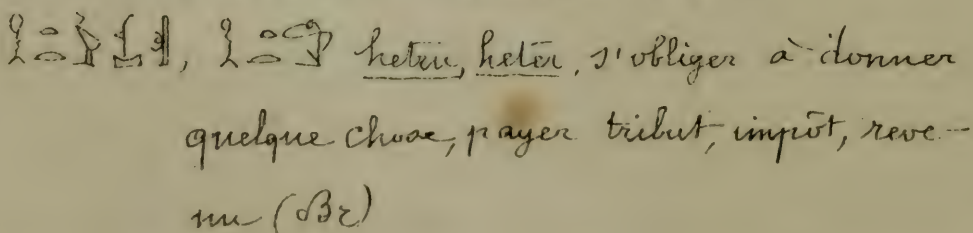 , hetru, heter, s'obliger à donner
quelque chose, payer tribut, impôt, reve-
nu (Br)